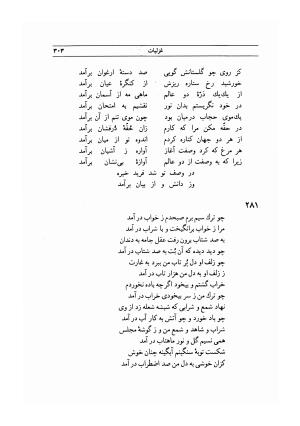 غزلیات
۳۰۳
کز روی چو گلستانش گویی صد دستهٔ ارغوان برآمد
خورشید رخ ستاره ریزش از کنگرهٔ عیان برآمد
از یک‌یک ذرّهٔ دو عالم ماهی مه از آسمان برآمد
در خود نگریستم بدان نور نقشیم به امتحان برآمد
یک‌موی حجاب درمیان بود چون موی تنم از آن برآمد
در حقّه مکن مرا که کارم زان حقّهٔ دُرفشان برآمد
از هر دو جهان کناره کردم اندوه تو از میان برآمد
هر مرغ که کرد وصفت آغاز آواره ز آشیان برآمد
زیرا که به وصفت از دو عالم آوازهٔ بی‌نشان برآمد
در وصف تو شد فرید خیره
وز دانش و از بیان برآمد
۲۸۱
چو ترک سیم برم صبحدم ز خواب در آمد
مرا ز خواب برانگیخت و با شراب در آمد
به صد شتاب برون رفت عقل جامه به دندان
چو دید دیده که آن بُت به صد شتاب در آمد
چو زلف او دل پُر تاب من ببرد به غارت
ز زلف او به دل من هزار تاب در آمد
خراب گشتم و بیخود اگرچه باده نخوردم
چو ترک من ز سر بیخودی خراب در آمد
نهاد شمع و شرابی که شیشه شعله زد از وی
چو باد خورد و چو آتش به کار آب در آمد
شراب و شاهد و شمع من و ز گوشهٔ مجلس
همی نسیم گل و نور ماهتاب در آمد
شکست توبهٔ سنگینم آبگینه چنان خوش
کزان خوشی به دل من صد اضطراب در آمد